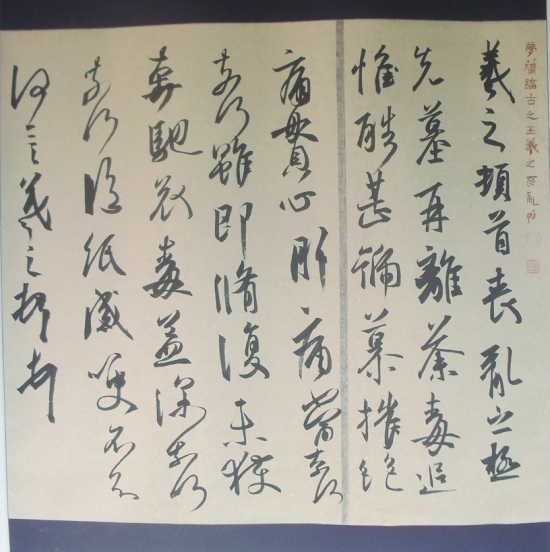 夢臨古之王羲之喪亂帖
羲之頓首喪亂之極
先墓再離荼毒追
惟酷甚號慕摧絕
痛貫心肝痛當奈何
奈何雖即脩復未獲
奔馳哀毒益深奈何
奈何臨紙感哽不知
何言羲之頓首頓首